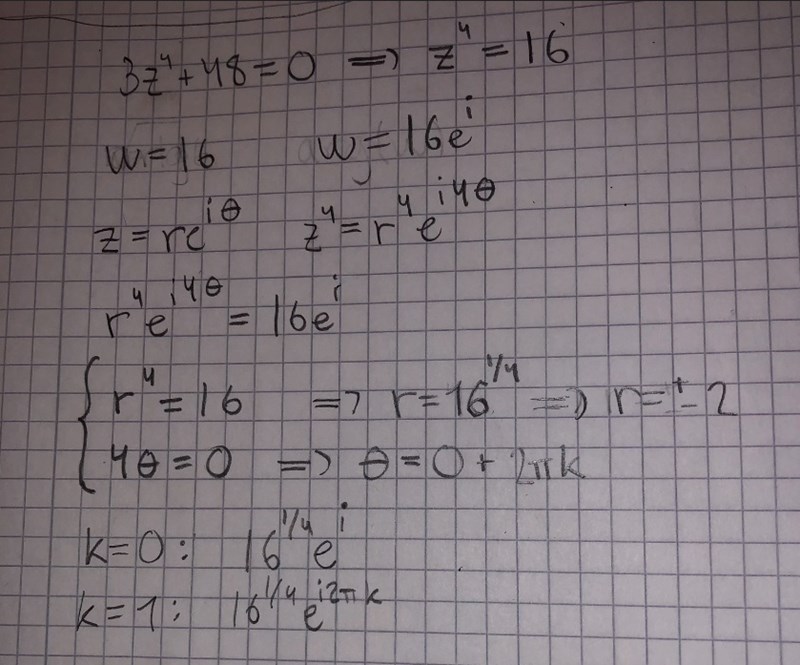 3z⁴+48=0 => z⁴=16
w=16 w=16eⁱ
z=re^{iθ} z⁴=r⁴e^{i4θ}
r⁴e^{i4θ}=16eⁱ
r⁴=16 => r=16^{1/4} => r=±2
4θ=0 => θ=0+2πk
k=0: 16^{1/4}eⁱ
k=1: 16^{1/4}e^{i2πk}